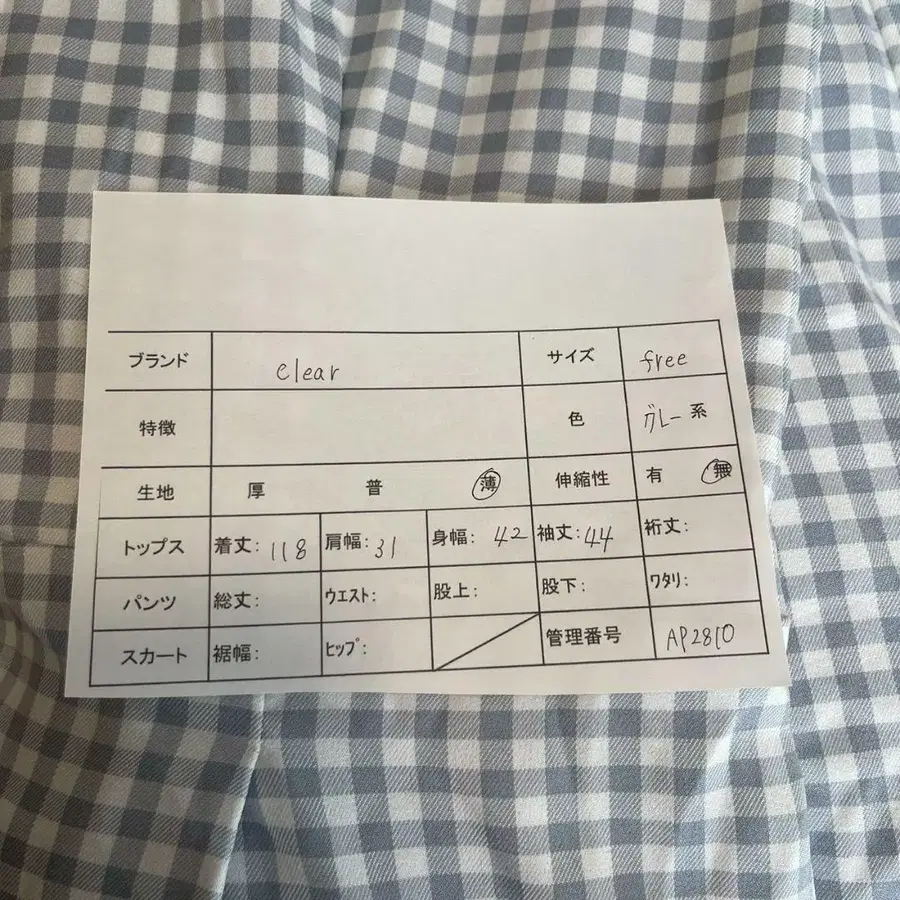 ブランド clear サイズ free
特徴 色 グレー系
生地 厚 普 薄 伸縮性 有 無
トップス 着丈: 118 肩幅: 31 身幅: 42 袖丈: 44 裄丈:
パンツ 総丈: ウエスト: 股上: 股下: ワタリ:
スカート 裾幅: ヒップ: 管理番号 AP2810